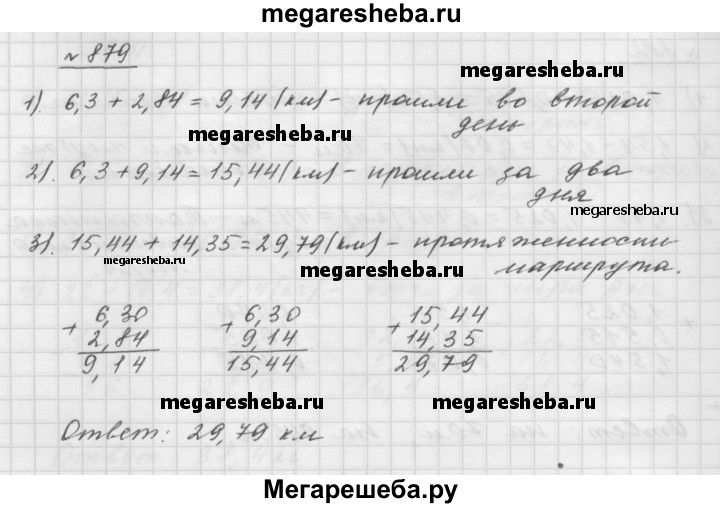 megaresheba.ru
№ 879
megaresheba.ru
1). 6,3 + 2,84 = 9,14 (км) - прошли во второй
день
megaresheba.ru
2). 6,3 + 9,14 = 15,44 (км) - прошли за два
дня
megaresheba.ru
3). 15,44 + 14,35 = 29,79 (км) - протяженности
маршрута.
megaresheba.ru
megaresheba.ru
+ 6,30
2,84
9,14
+ 6,30
9,14
15,44
+ 15,44
14,35
29,79
megaresheba.ru
megaresheba.ru
Ответ: 29,79 км
Мегарешеба.ру